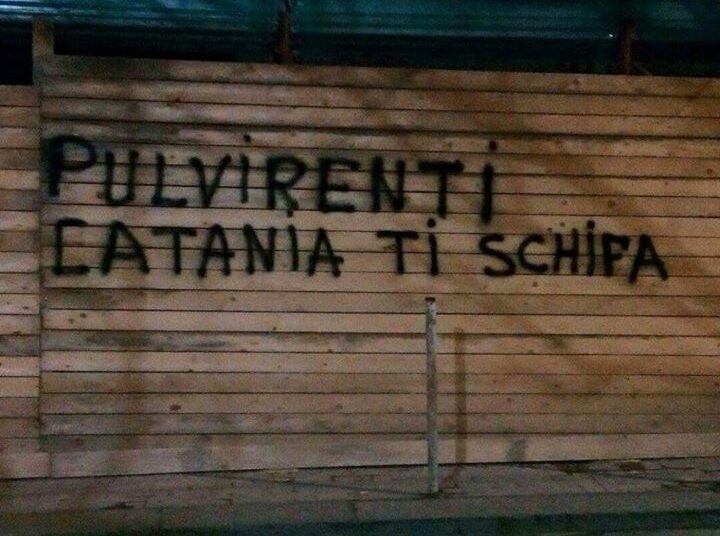 PULViRENTi
CATANiA Ti SCHiFA